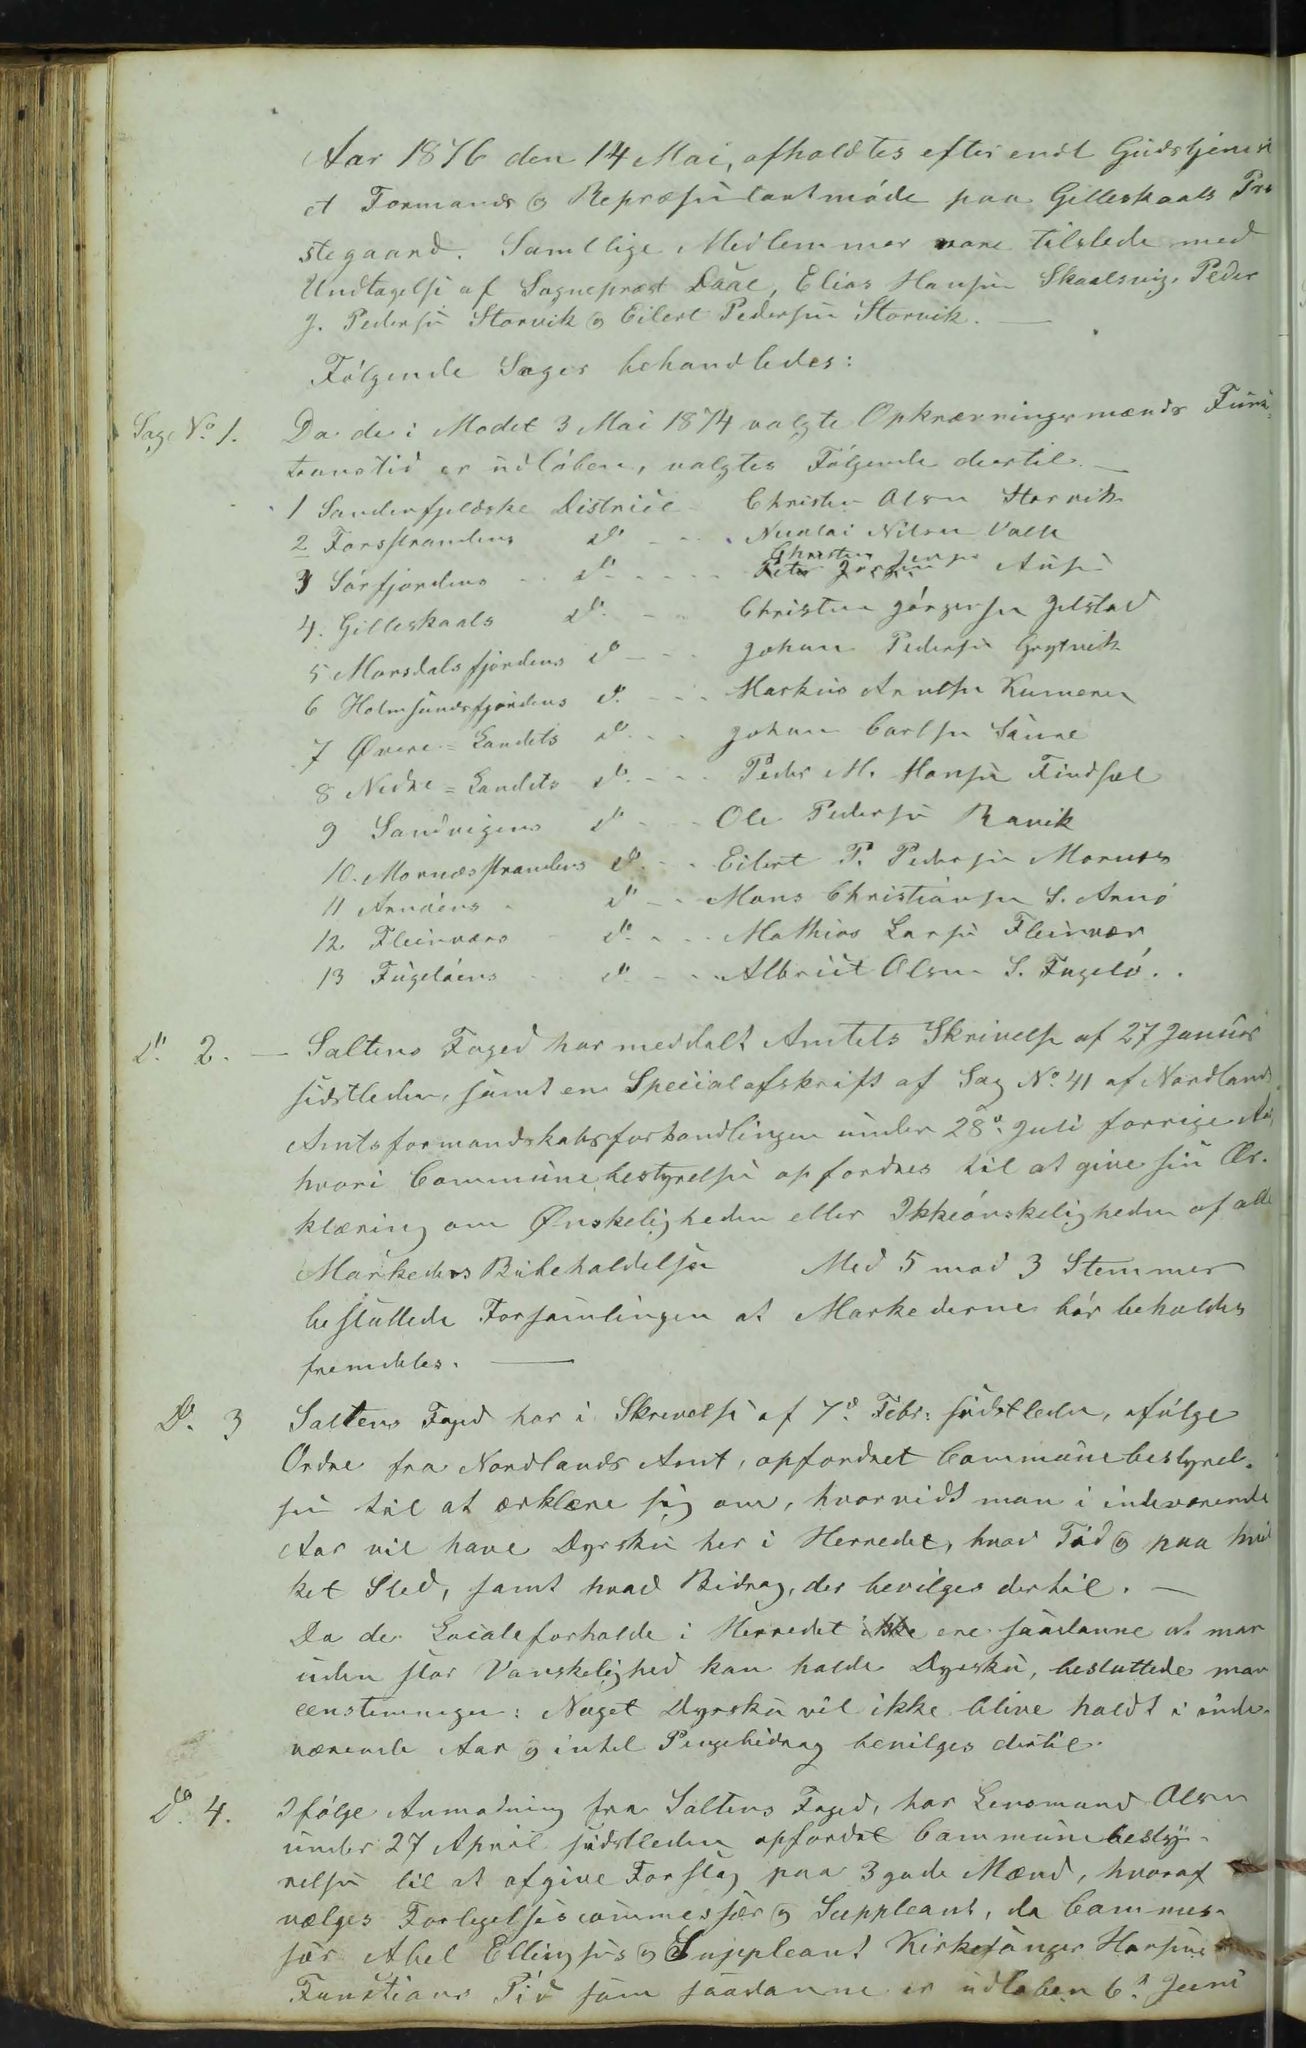 Aar 1876 den 14 Mai, afholdtes efter endt Gudstjenest
et Formands og Repræsentantmöde paa Gilleskaals Præ
stegaard. Samtlige Medlemmer vare tilstede med
Undtagelse af Sognepræst Daae, Elias Hansen Skaalsvig, Peder
J. Pedersen Storvik og Eilert Pedersen Storvik. —
Fölgende Sager behandledes:
Sag No 1. Da de i Mödet 3 Mai 1874 valgte Opkrævningsmænds Func-
tionstid er udlöben, valgtes Fölgende dertil. —
1 Sandenfjeldske District Christen Olsen Storvik
2 Forsstrandens do - - Nicolai Nilsen Valle
3 Sörfjordens - - do - - - Christen Jensen Aasen
4. Gilleskaals do. - - Christen Jörgensen Jelstad
5 Morsdalsfjordens do - - Johan Pedersen Grytvik
6 Holmsundsfjordens do. - - Markus Arntsen
7 Øvre=Landets do - - Johan Carlsen Saura
8 Nedre=Landets do. - - Peder M. Hansen Findsæt
9 Sandvigens do - - Ole Pedersen Ravik
10. Mornæsstrandens do. - - Eilert P. Pedersen Mornæs
11 Arnöens - do - - Mons Christiansen S. Arnö
12. Fleinværs - do. - - Mathias Larsen Fleinvær
13 Fugelöens - - do - - Albrigt Olsen S. Fugelö. .
do 2. — Saltens Foged har meddelt Amtets Skrivelse af 27 Januar
sidstleden, samt en Specialafskrift af Sag No 41 af Nordlands
Amtsformandskabsforhandlinger under 28de Juli forrige Aar,
hvori Communebestyrelsen opfordres til at give sin Er-
klæring om Ønskeligheden eller Ikkeönskeligheden af alle
Markeders Bibeholdelse Med 5 mod 3 Stemmer
besluttede Forsamlingen at Markederne bör beholdes
fremdeles. —
Do. 3 Saltens Foged har i Skrivelse af 7de Febr: sidstleden, ifölge
Ordre fra Nordlands Amt, opfordret Communebestyrel-
sen til at erklære sig om, hvorvidt man i indeværende
Aar vil have Dyrsku her i Herredet, hvad Tid og paa hvil
ket Sted, samt hvad Bidrag, der bevilges dertil. —
Da de Localeforholde i Herredet ikke ere saadanne at man
uden stor Vanskelighed kan holde Dyrsku, besluttede man
eenstemmigen: Noget Dyrsku vil ikke blive holdt i inde-
værende Aar og intet Pengebidrag bevilges dertil.
Do. 4. Ifölge Anmodning fra Saltens Foged, har Lensmand Olsen
under 27 April sidstleden opfordret Communebesty-
relsen til at afgive Forslag paa 3 gode Mænd, hvoraf
vælges Forligelsescommessær og Suppleant, da Commes-
sær Abel Ellingsens og Suppleant Kirkesanger Hansens
Functions Tid som saadanne er udloben 6te Juni